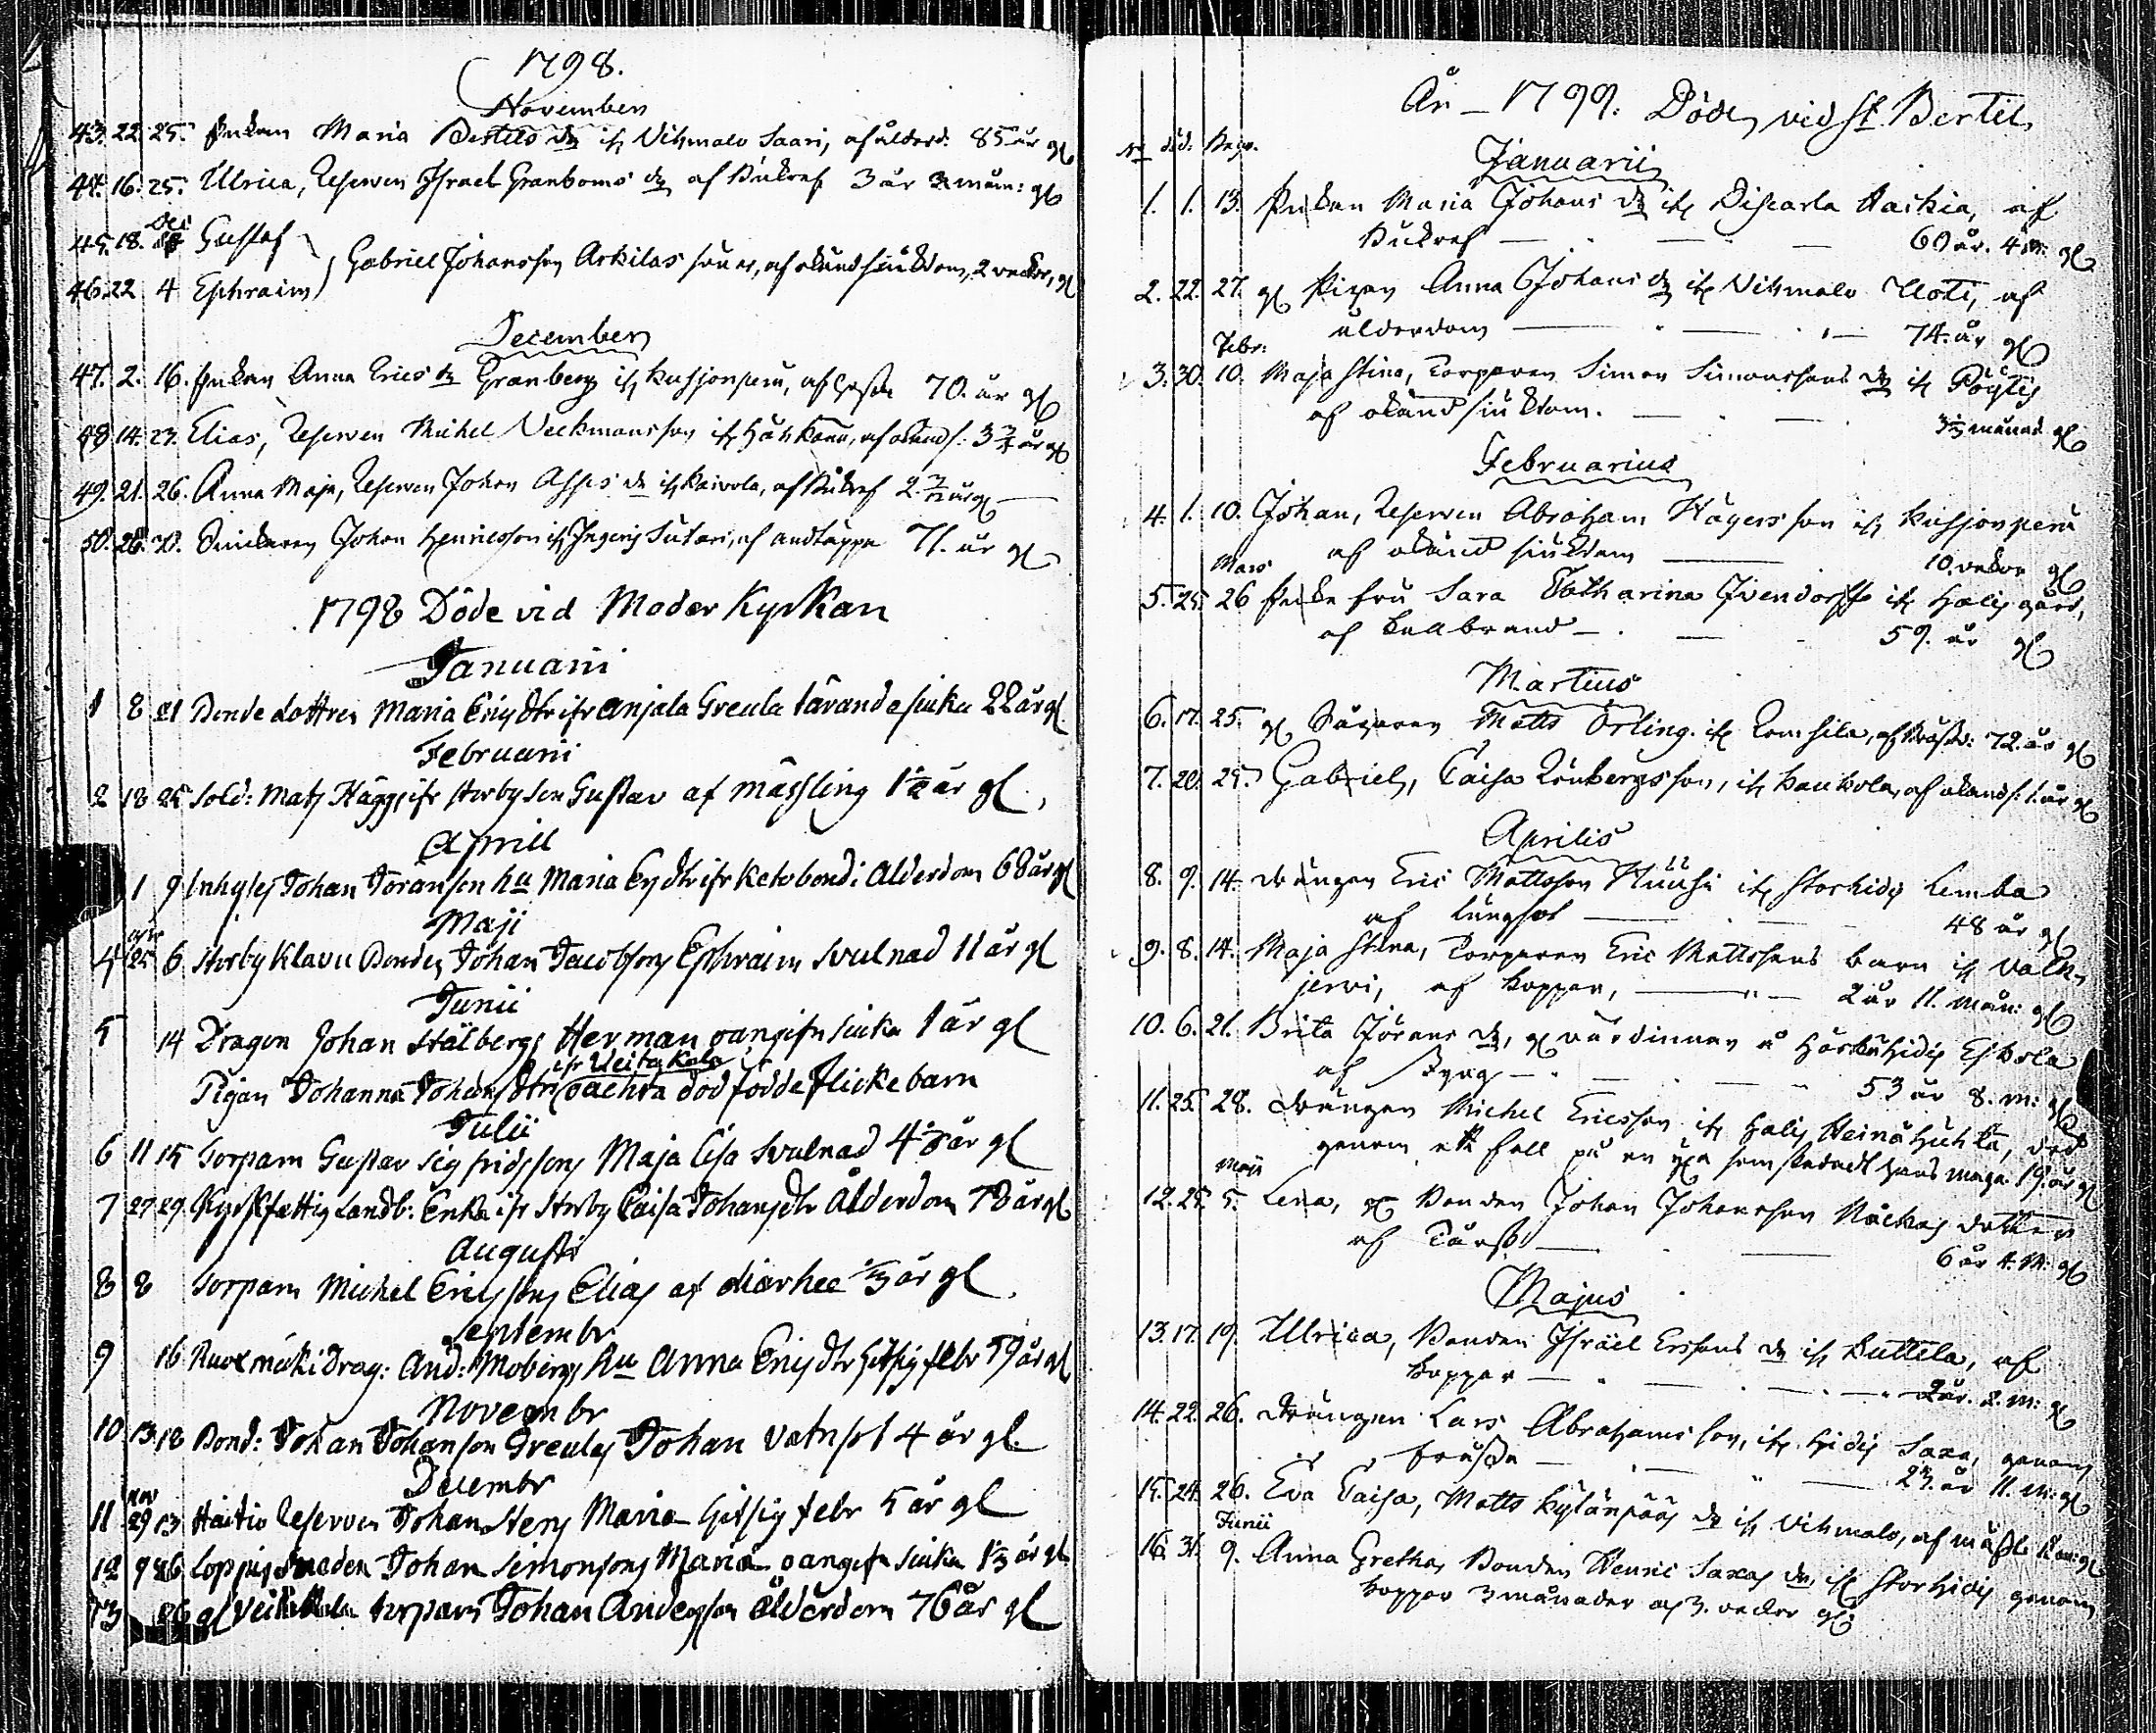 1798.
November
43. 22. 25. Enkan Maria Bertils dr ifr Vihmalo Saari, af ålderd. 85 år gl
44. 16. 25. Ulrica, Reserven Israel Granboms dr af 3 år 3 mån: gl
45. 18. Gustaf
46. 22 4 Ephraim Gabriel Johansson Arkilas söner, af okänd siukdom, 2 veckor, gl
December
47. 2. 16. Enkan Anna Erics dr Granberg ifr af 70. år gl
48 14. 23. Elias, Reserven Michel Veckmansson ifr af okänd s: år gl
49. 21. 26. Anna Maja, Reserven Johan dr ifr Kaivola, af 2 år gl
50. 26. 30. Johan Henricsson ifr Ingeris Sutari, af andtäppa 71. år gl
1798 Döde vid Moder Kyrkan
Januarii
1 8 21 Bonde dottren Maria Ericsdtr ifr Anjala Greula tärande siuka 22 år gl
Februarii
2 18 25 Sold: Mats Häggs ifr Storby son Gustav af mässling 1 1/2 år gl.
Aprill
1 9 Inhyses Johan Joransson hu Maria Ersdtr ifr Ketobondi Ålderdom 68 år gl
Maji
4 25 6 Storby Klavu Bondes Johan Jacobssons Ephraim Svulnad 11 år gl
Junii
5 14 Dragon Johan Stålbergs Herman oangifn siuka 1 år gl
ifr Veitakala
Pigan Johanna Johansdtrs oächta död födde flicke barn
Julii
6 11 15 Torparn Gustav Sigfridssons Maja Lisa Svulnad år gl
7 27 29 Kyrkfattig Landb: Enka ifr Storby Caisa Johansdtr Ålderdom 78 år gl
Augusti
8 8 Torparn Michel Ericssons Elias af diarhee 1/3 år gl
Septembr
9 16 Ruoxmäki Drag: And: Mobergs hu Anna Ericsdtr Hitsig febr 59 år gl
Novembr
10 13 18 Bond: Johan Johansson Greulas Johan Vatnsot 4 år gl.
Decembr
nov
11 29 13 Haitio Reserven Johan Stens Maria Hitsig febr 5 år gl
12 9 26 Loppis Johan Simonsons Maria oangifn siuka 1 1/3 år gl
13 26 gl Veitakala torparn Johan Andersson ålderdom 76 år gl
År - 1799. Döde vid St. Bertil,
No död: Begr.
Januarii
1. 1. 13. Enkan Maria Johans dr ifr Discarla Haikia, af
60 år. 4 m: gl
2. 22. 27. gl Pigan Anna Johans dr ifr Vihmalo Uoti, af
ålderdom 74. år gl
Febr:
3. 30. 10. Maja Stina, Torparen Simon Simonssons dr ifr Pöytis
af okänd siukdom. månad gl
Februarius
4. 1. 10. Johan, Reserven Abraham Hägers son ifr
af okänd siukdom 10. vekor gl
Mars
5. 25. 26 Enke fru Sara Catharina ifr Halis gård,
af kallbrand 59. år gl
Martius
6. 17. 25. gl Matts Örling. ifr 72. år gl
7. 20. 25. Gabriel, Caisa Lönbergs son, ifr Kaukola, af okänd s: 1. år gl
Aprilis
8. 9. 14. Drängen Eric Mattsson ifr Storhidis Lemba
af lungsot 48 år gl
9. 8. 14. Maja Stina, Torparen Eric Mattssons barn ifr Valk-
jervi, af koppor, 2 år 11. mån: gl
10. 6. 21. Brita Jörans dr, gl värdinnan å Eskola
af 53 år 8. m: gl
11. 25. 28. Drängen Michel Ericsson ifr Halis Heinähuhta, död
genom ett fall på en yxa som skadadt hans maga. 19. år gl
Maji
12. 25. 5. Lena, gl Bonden Johan Johansson dotter
af 6 år 4. m: gl
Majus
13. 17. 19. Ulrica, Bonden Israel Erssons dr ifr Kuttila, af
koppor 2 år. 2. m: gl
14. 22. 26. Drängen Lars Abrahamsson, ifr Hidis Saxa, genom
23. år 11. m: gl
15. 24. 26. Eva Caisa, Matts Kylänpääs dr ifr Vihmalo, af gl
Junii
16. 31. 9. Anna Gretha, Bonden Henric Saxas dr, ifr Storhidis genom
koppor 3 månader af 3. veckor gl